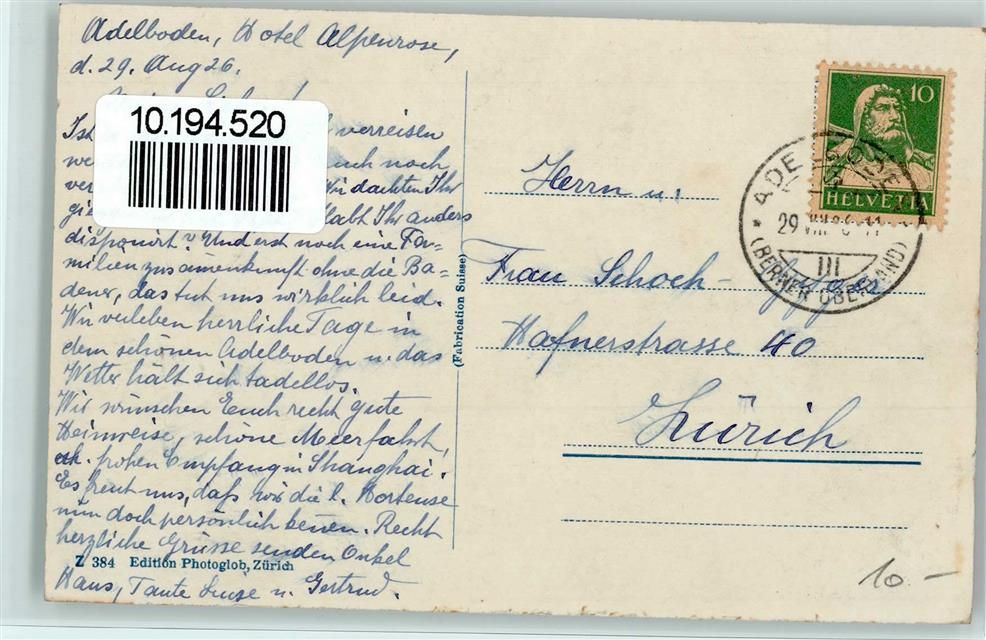 Adelboden, Hotel Alpenrose,
d. 29. Aug 26.
10.194.520
verreisen
noch
Wir dachten Ihr
habt Ihr anders
disponirt? Und erst noch eine Fa=
milienzusamenkunft ohne die Ba=
dener, das tut uns wirklich leid.
Wir verleben herrliche Tage in
dem schönen Adelboden u. das
Wetter hält sich tadellos.
Wir wünschen Euch recht gute
Heimreise, schöne Meerfahrt,
frohen Empfang in Shanghai.
Es freut uns, daß wir die l. Hortense
nun doch persönlich kenen. Recht
herzliche Grüsse senden Onkel
Haus, Tante Luise u. Gertrud.
Z 384 Edition Photoglob, Zürich
(Fabrication Suisse)
10
HELVETIA
ADELBODEN
29 VIII
III
(BERNER OBERLAND)
Herrn u.
Frau Schoch-
Hafnerstrasse 40
Zürich
10.-